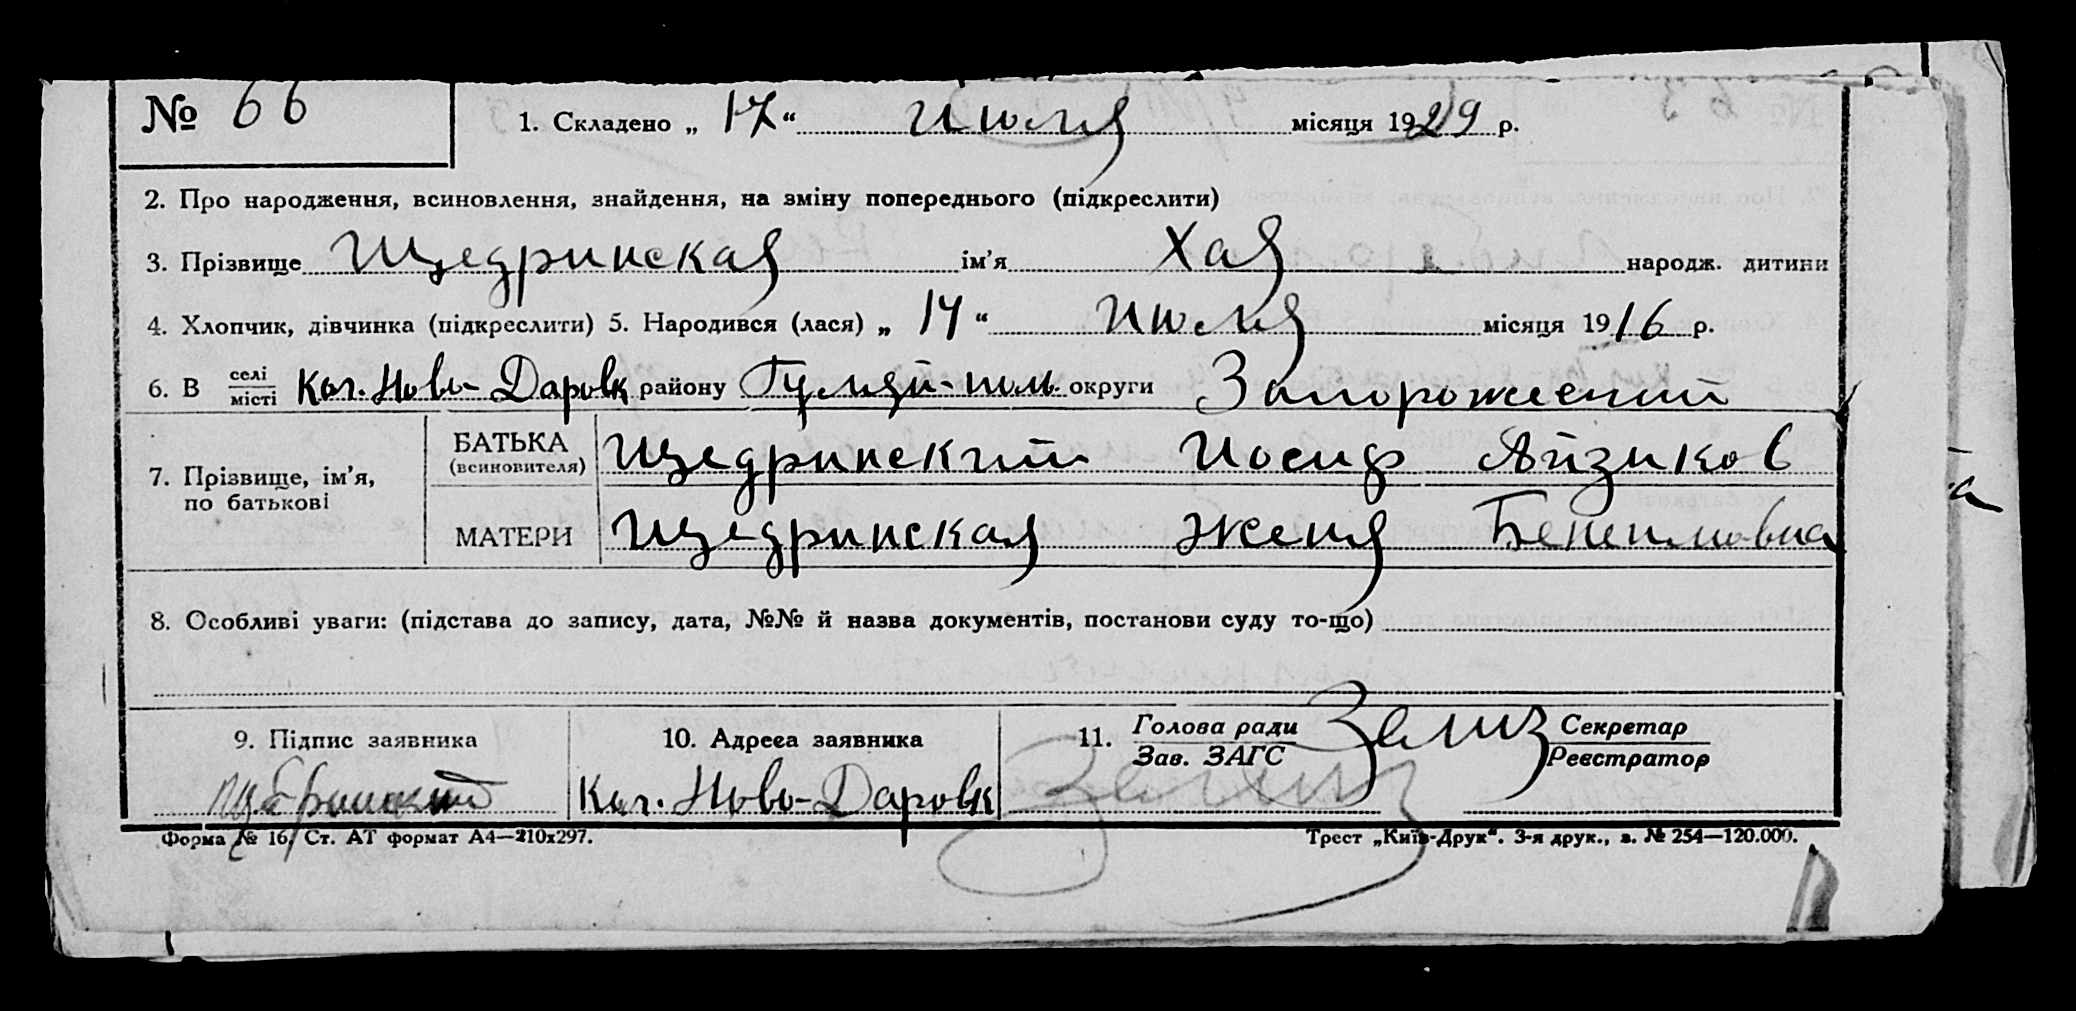 № 66 1. Складено „ 17 “ Июля місяця 1929 р.
2. Про народження, всиновлення, знайдення, на зміну попереднього (підкреслити)
3. Прізвище Щедринская ім’я Хая народж. дитини
4. Хлопчик, дівчинка (підкреслити) 5. Народився (лася) „ 14 “ Июля місяця 1916 р.
6. В селі місті Кол. Ново-Даровк району Гуляй-поль округи
7. Прізвище, ім’я, по батькові
БАТЬКА (всиновителя) Щедринский Иосиф Айзиков
МАТЕРИ Щедринская Женя
8. Особливі уваги: (підстава до запису, дата, №№ й назва документів, постанови суду то-що)
9. Підпис заявника 10. Адреса заявника 11. Голова ради Зав. ЗАГС Секретар Реєстратор
Кол. Ново-Даровк
Форма № 16, Ст. АТ формат А4—210х297. Трест „Київ-Друк“. 3-я друк., з. № 254—120.000.